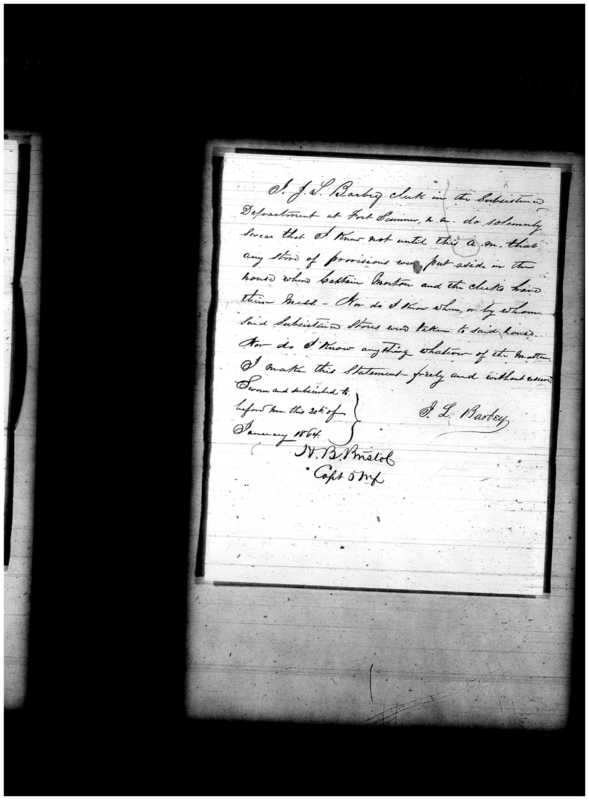 I. J. L. Barbey clerk in the Subsistence
Department at Fort Sumner, N. M. do solemnly
swear that I knew not until this A.M. that
any store of provisions were put aside in the
house where Captain Morton and the clerks have
their Mess - Nor do I know when, or by whom
said Subsistence Stores were taken to said house.
Nor do I know anything whatever of the matter.
I make this Statement freely and without reserve
Sworn and subscribed to
before me this 20th of
January 1864.
J. L. Barbey
H. B. Bristol
Capt 5 Inf